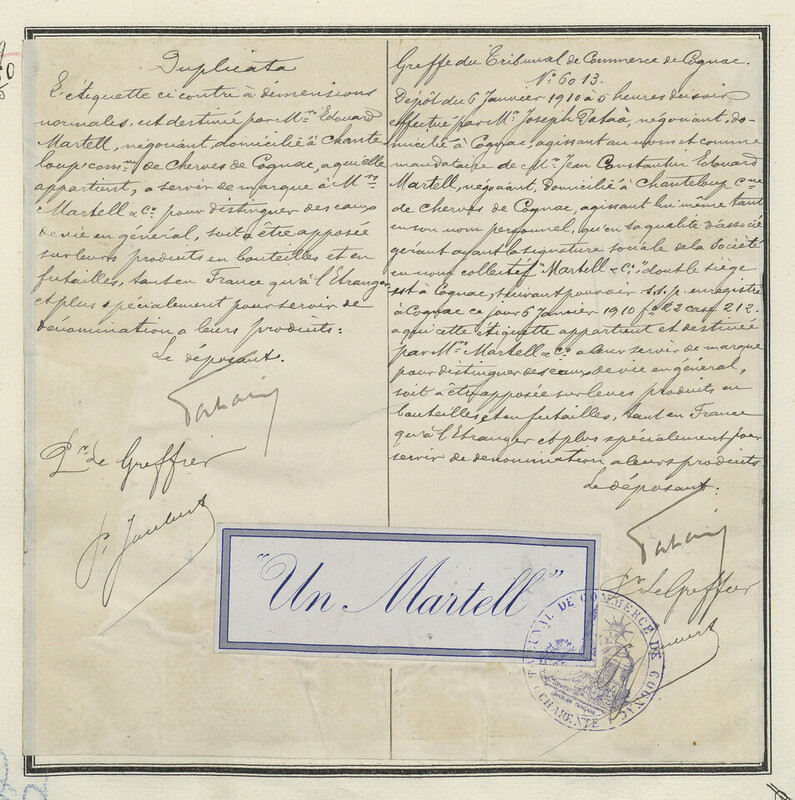 Duplicata
L'étiquette ci contre à dimensions
normales, est destinée par Mr Edouard
Martell, négociant, domicilié à Chante
loup comne de Cherves de Cognac, à qui elle
appartient, à servir de marque à Mrs
Martell & Co pour distinguer des eaux
de vie en général, soit à être apposée
sur leurs produits en bouteilles et en
futailles, tant en France qu'à l'Etranger
et plus spécialement pour servir de
dénomination a leurs produits:
Le déposant.
Pr Le Greffier
Greffe du Tribunal de Commerce de Cognac.
No 6013.
Dépôt du 6 Janvier 1910 à 5 heures du soir
effectué par Mr Joseph négociant, do-
micilié à Cognac, agissant au nom et comme
mandataire de Mr Jean Constantin Edouard
Martell, négociant, domicilié à Chanteloup Cne
de Cherves de Cognac, agissant lui même tant
en son nom personnel, qu'en sa qualité d'associé
gérant ayant la signature sociale de la Société
en nom collectif "Martell & Co," dont le siège
est à Cognac, suivant pouvoir s.s.p. enregistré
à Cognac ce jour 6 Janvier 1910 fo 22 case 212.
a qui cette étiquette appartient et destinée
par Mrs Martell & Co a leur servir de marque
pour distinguer des eaux de vie en général,
soit à être apposée sur leurs produits en
bouteilles et en futailles, tant en France
qu'à l'Etranger et plus spécialement pour
servir de dénomination a leurs produits
Le déposant:
Pr Le Greffier
"Un Martell"
TRIBUNAL DE COMMERCE DE COGNAC
CHARENTE